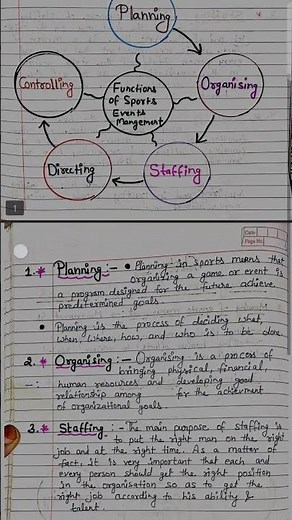 Planning
Controlling
Functions
of Sports
Events
Mangement
Organising
Directing
Staffing
1
Date
Page No.
1.* Planning :- • Planning in sports means that
organising a game or event is
a program designed for the future achieve
predetermined goals.
• Planning is the process of deciding what,
when, where, how, and who is to be done.
2.* Organising :- Organising is a process of
bringing physical, financial,
-: human resources and developing good
relationship among for the achievment
of organizational goals.
3.* Staffing :- The main purpose of staffing is
to put the right man on the right
job and at the right time. As a matter of
fact, it is very important that each and
every person should get the right position
in the organisation so as to get the
right job according to his ability &
talent.